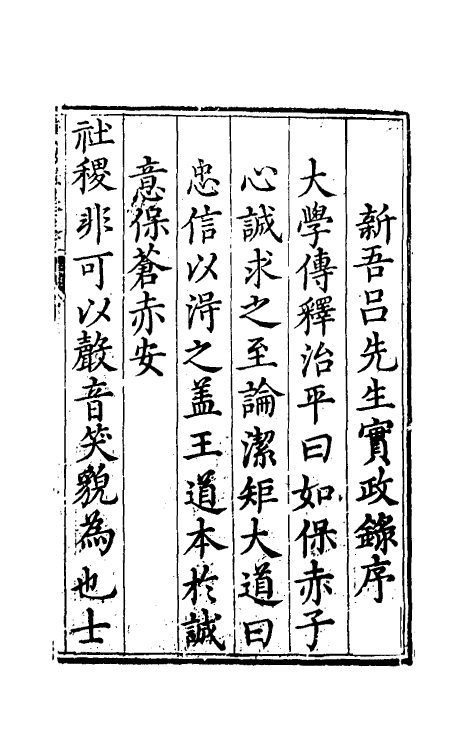 新吾呂先生實政錄序
大學傳釋治平曰如保赤子
心誠求之至論潔矩大道曰
忠信以淂之盖王道本於誠
意保蒼赤安
社稷非可以嚴音笑貌為也士